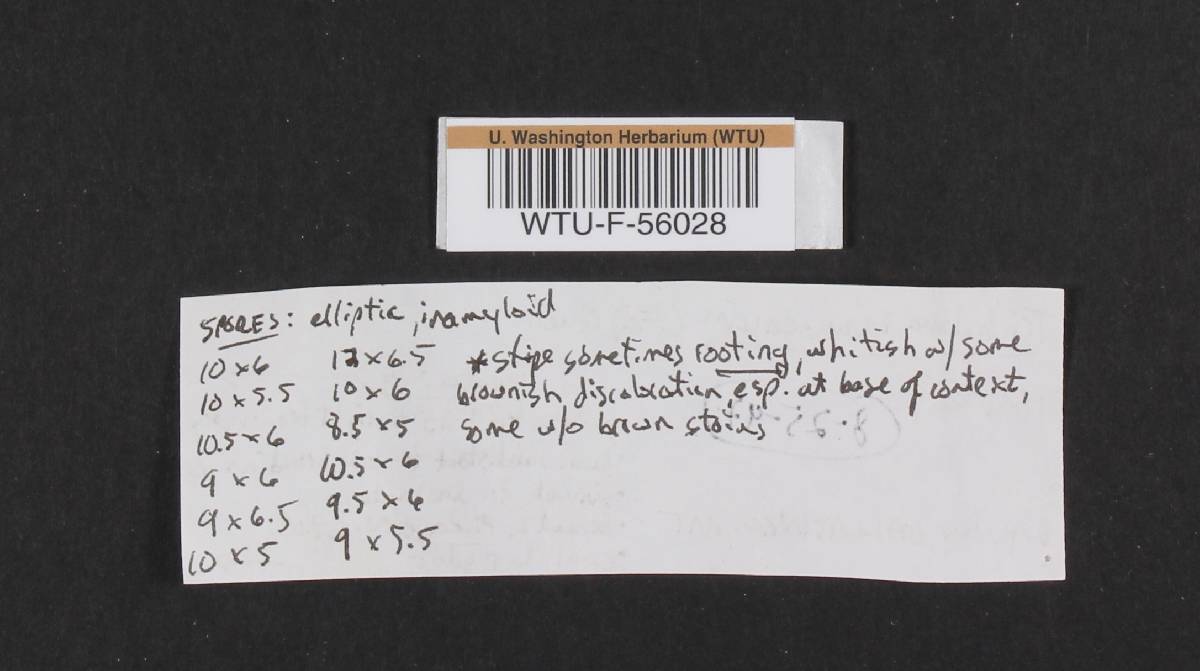 U. Washington Herbarium (WTU)
WTU-F-56028
SPORES: elliptic, inamyloid
10 x 6
10 x 5.5
10.5 x 6
9 x 6
9 x 6.5
10 x 5
x 6.5
10 x 6
8.5 x 5
10.5 x 6
9.5 x 6
9 x 5.5
*stipe sometimes rooting, whitish w/ some
brownish discoloration, esp. at base of context,
some w/o brown stains